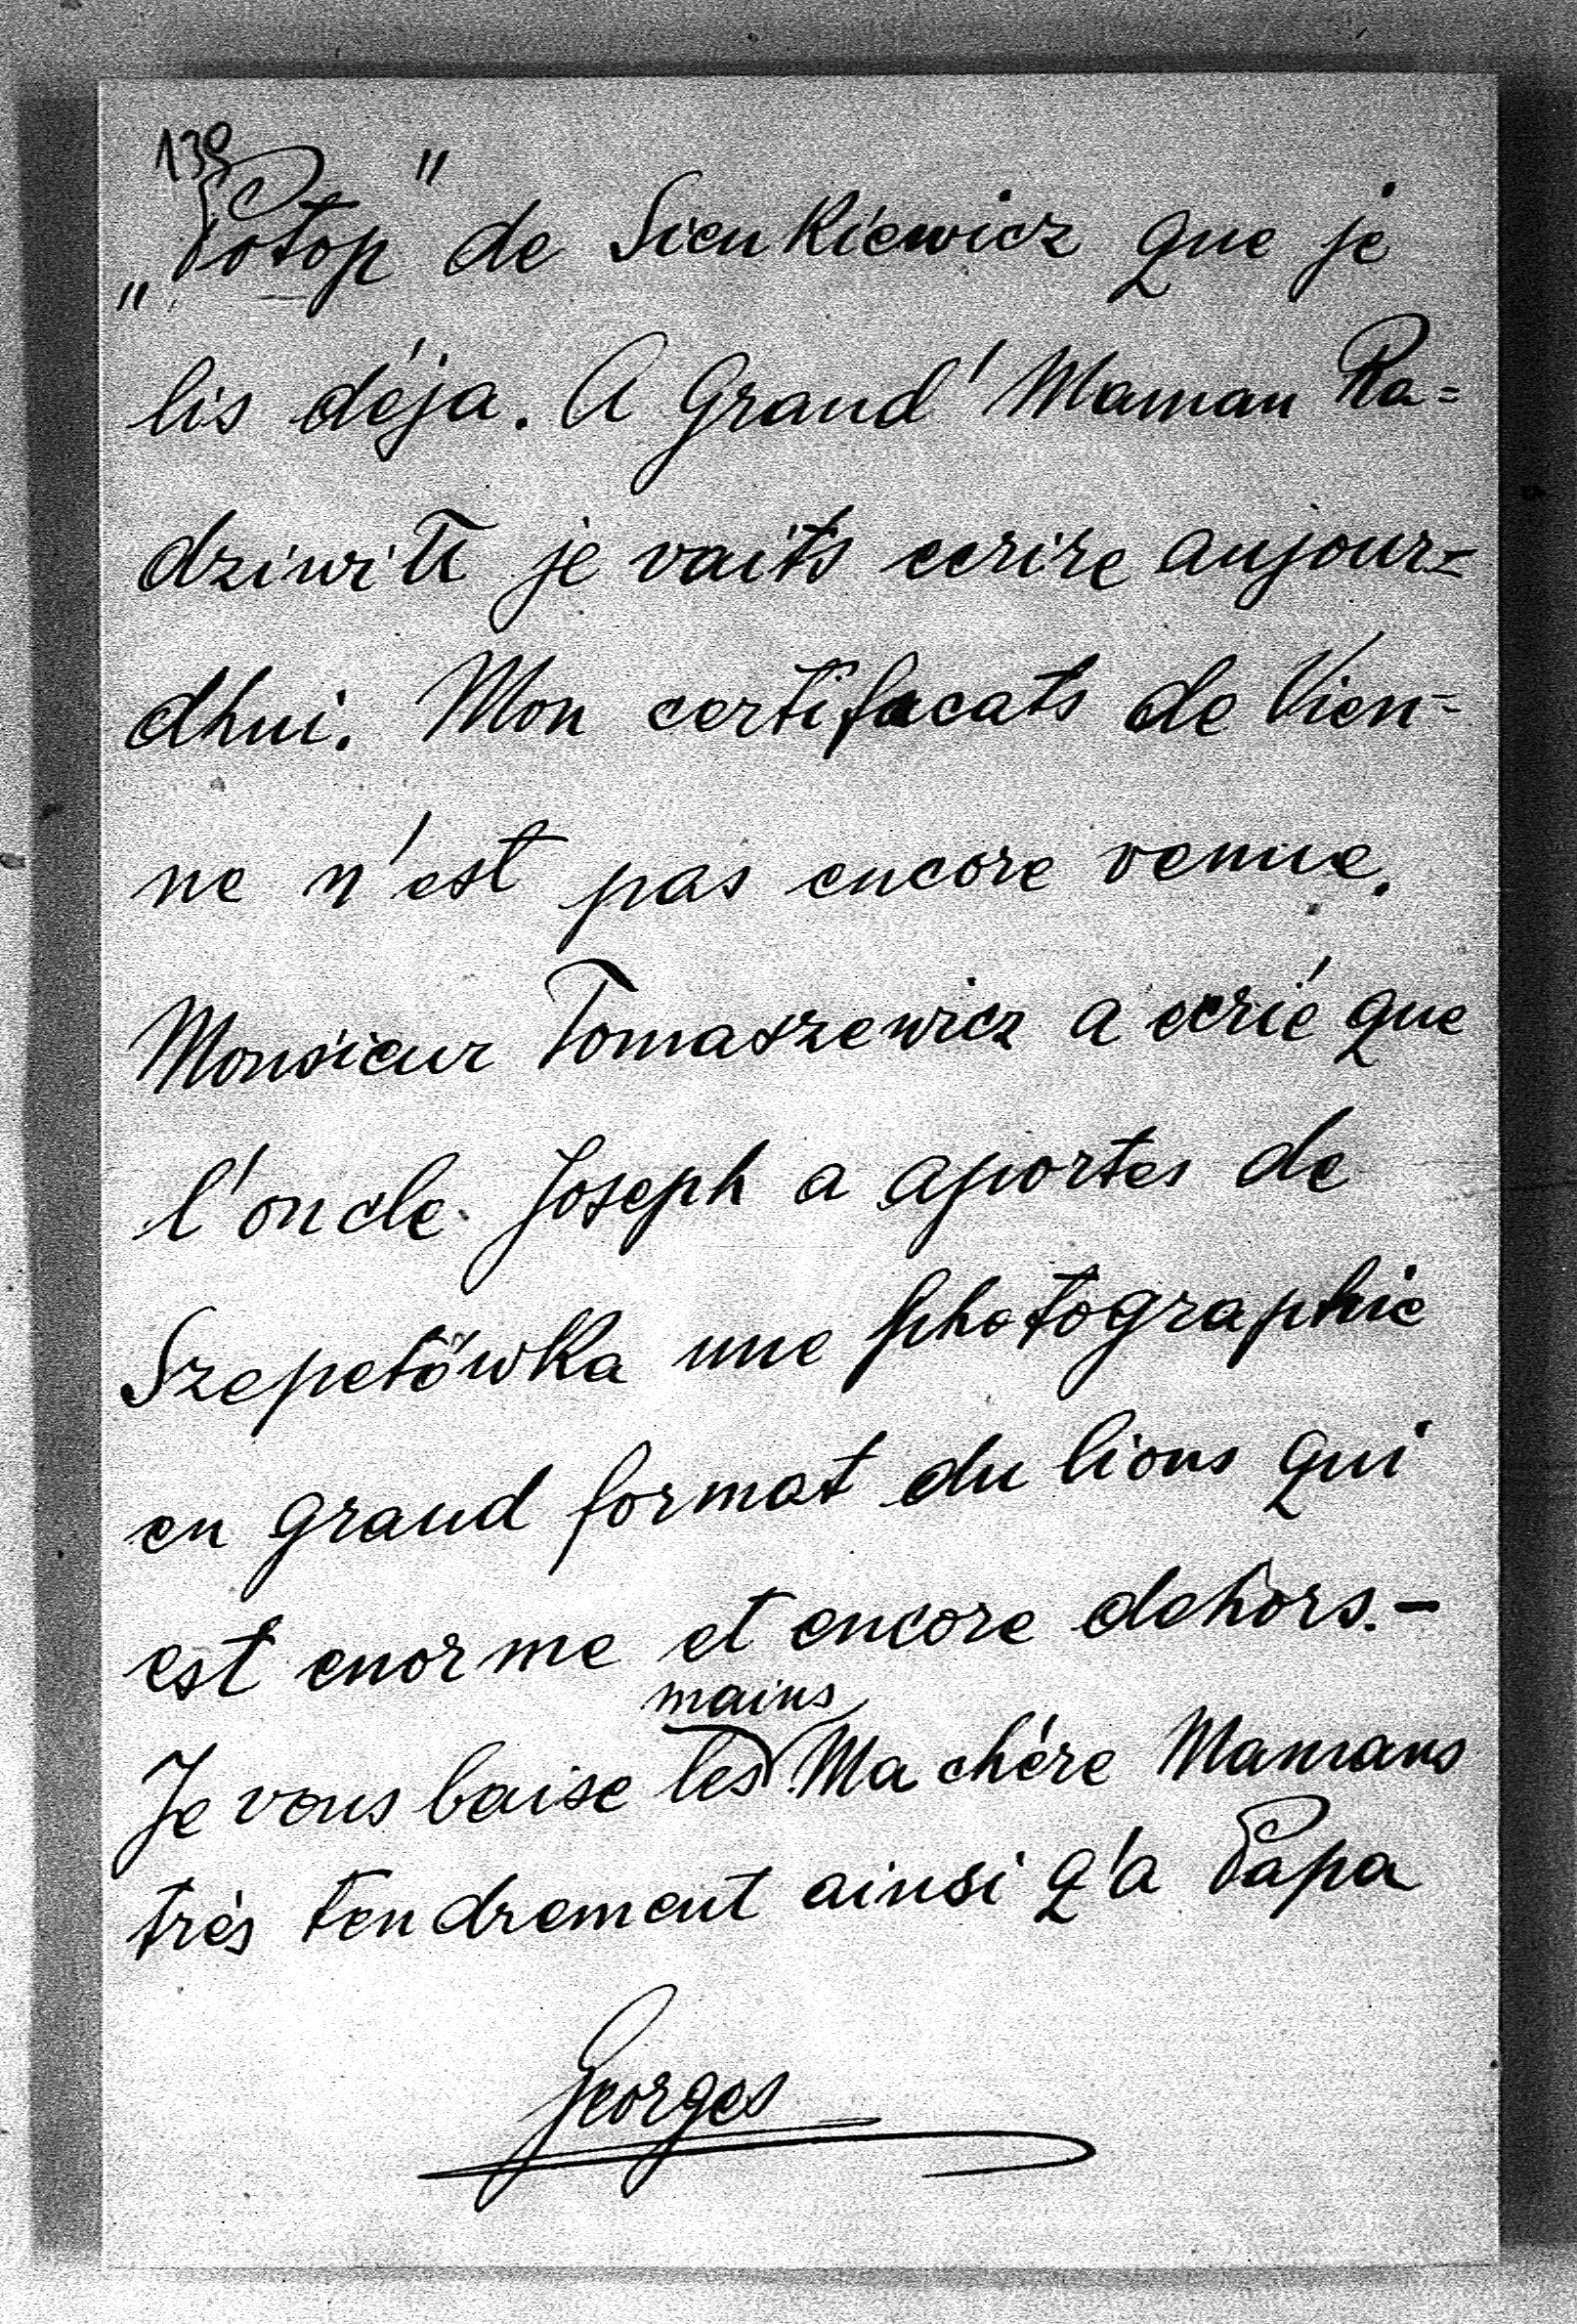 139
„Potop" de Sienkiewicz que je
lis déja. A Grand' Maman Ra=
dziwiłł je vaits ecrire aujour=
dhui. Mon certificats de Vien=
ne n'est pas encore venue.
Monsieur Tomaszewicz a ecrié que
l'oncle Joseph a aportes de
Szepetówka une photographie
en grand format du lions qui
est enorme et encore dehors.-
mains
Je vous baise les Ma chére Mamans
très tendrement ainsi q'a Papa
Georges